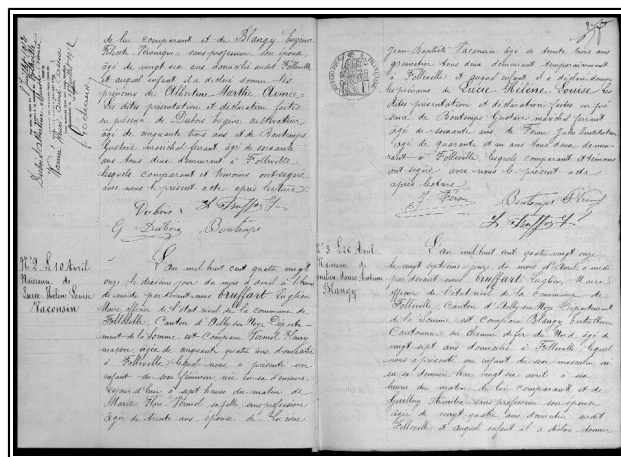 de lui comparant et de Blangy Eugénie
Félicité Véronique sans profession son épouse
âgé de vingt six ans domicilié audit Folleville
et auquel enfant il a déclaré donner les
prénoms de Albertine Marthe Aimée
les dites présentation et déclaration faites
en présence de Dubois Eugène cultivateur
âgé de cinquante trois ans et de Bontemps
Gustave maréchal ferrant, âgé de soixante
ans tous deux demeurant à Folleville
lesquels comparant et témoins ont signé
avec nous le présent acte après lecture.
Dubois
G Dubois Bontemps
N° 2 Le 10 Avril
Naissance de
Lucie Hélène Louise
Vaconsin
L'an mil huit cent quatre vingt
onze le dixième jour du mois d'avril à
par devant nous Truffart Luglien
Maire officier de l'état civil de la commune de
Folleville, Canton d'Ailly sur Noye Département
de la Somme est comparu Vermel Fleury
maçon, âgé de cinquante quatre ans domicilié
à Folleville lequel nous a présenté un
enfant du sexe féminin, née en sa demeure
cejourd'hui à sept heures du matin de
Marie Vermel sa fille, sans profession
âgé de trente ans, épouse de
Jean Baptiste Vaconsin âgé de trente trois ans
tous deux demeurant temporairement
à Folleville et auquel enfant il a déclaré donner
les prénoms de Lucie Hélène Louise les
dites présentation et déclaration faites en pré
sence de Bontemps Gustave maréchal ferrant
âgé de soixante ans de Féron Jules Instituteur
âgé de quarante et un ans tous deux demeu
rant à Folleville lesquels comparant et témoins
ont signé avec nous le présent acte
après lecture
J. Féron Bontemps F Vermel
N° 3 Le 26 Avril
Naissance de
Blangy
L'an mil huit cent quatre vingt onze
le vingt septième jour du mois d'Avril à midi
par devant nous Truffart Luglien, Maire
officier de l'état civil de la Commune de
Folleville, canton d'Ailly sur Noye Département
de la Somme est comparu Blangy
Cantonnier au Chemin de fer du Nord, âgé de
vingt sept ans domicilié à Folleville lequel
nous a présenté un enfant du sexe masculin né
en sa demeure hier vingt six avril à six
heures du matin de lui comparant et de
sans profession son épouse
âgée de vingt quatre ans domiciliée audit
Folleville et auquel enfant il a déclaré donner